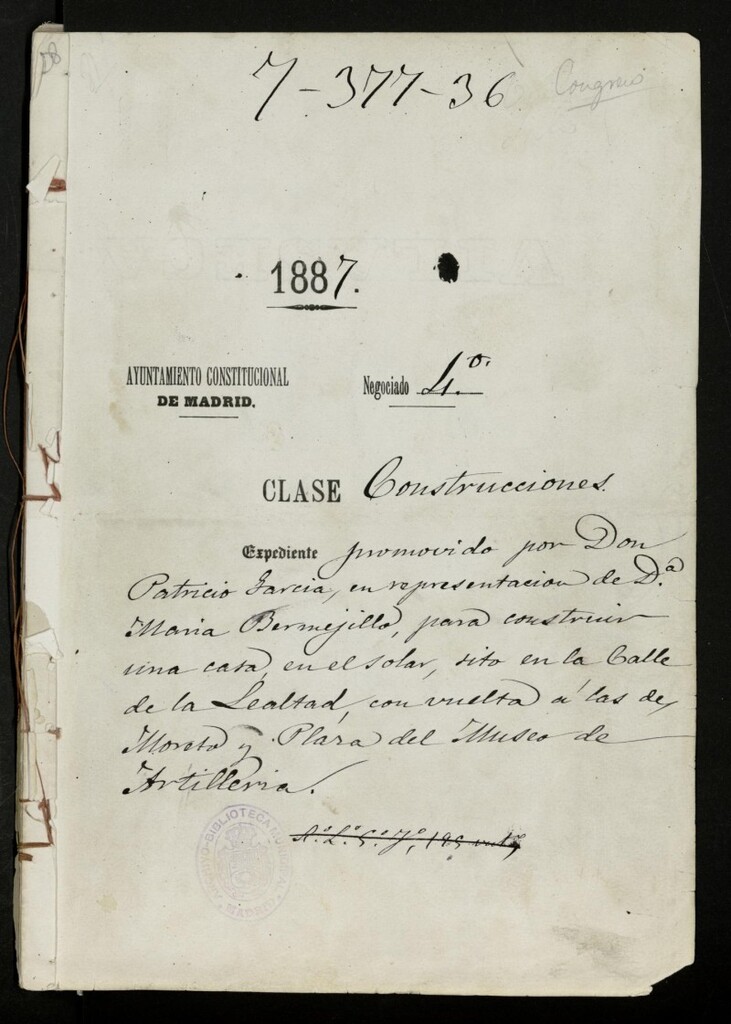 7-377-36
Congreso
1887.
AYUNTAMIENTO CONSTITUCIONAL
DE MADRID.
Negociado 4.º
CLASE Construcciones.
Expediente promovido por Don
Patricio Garcia, en representacion de D.ª
Maria Bermejillo, para construir
una casa, en el solar, sito en la Calle
de la Lealtad, con vuelta á las de
Moreto y Plaza del Museo de
Artilleria.
BIBLIOTECA MUNICIPAL
MADRID